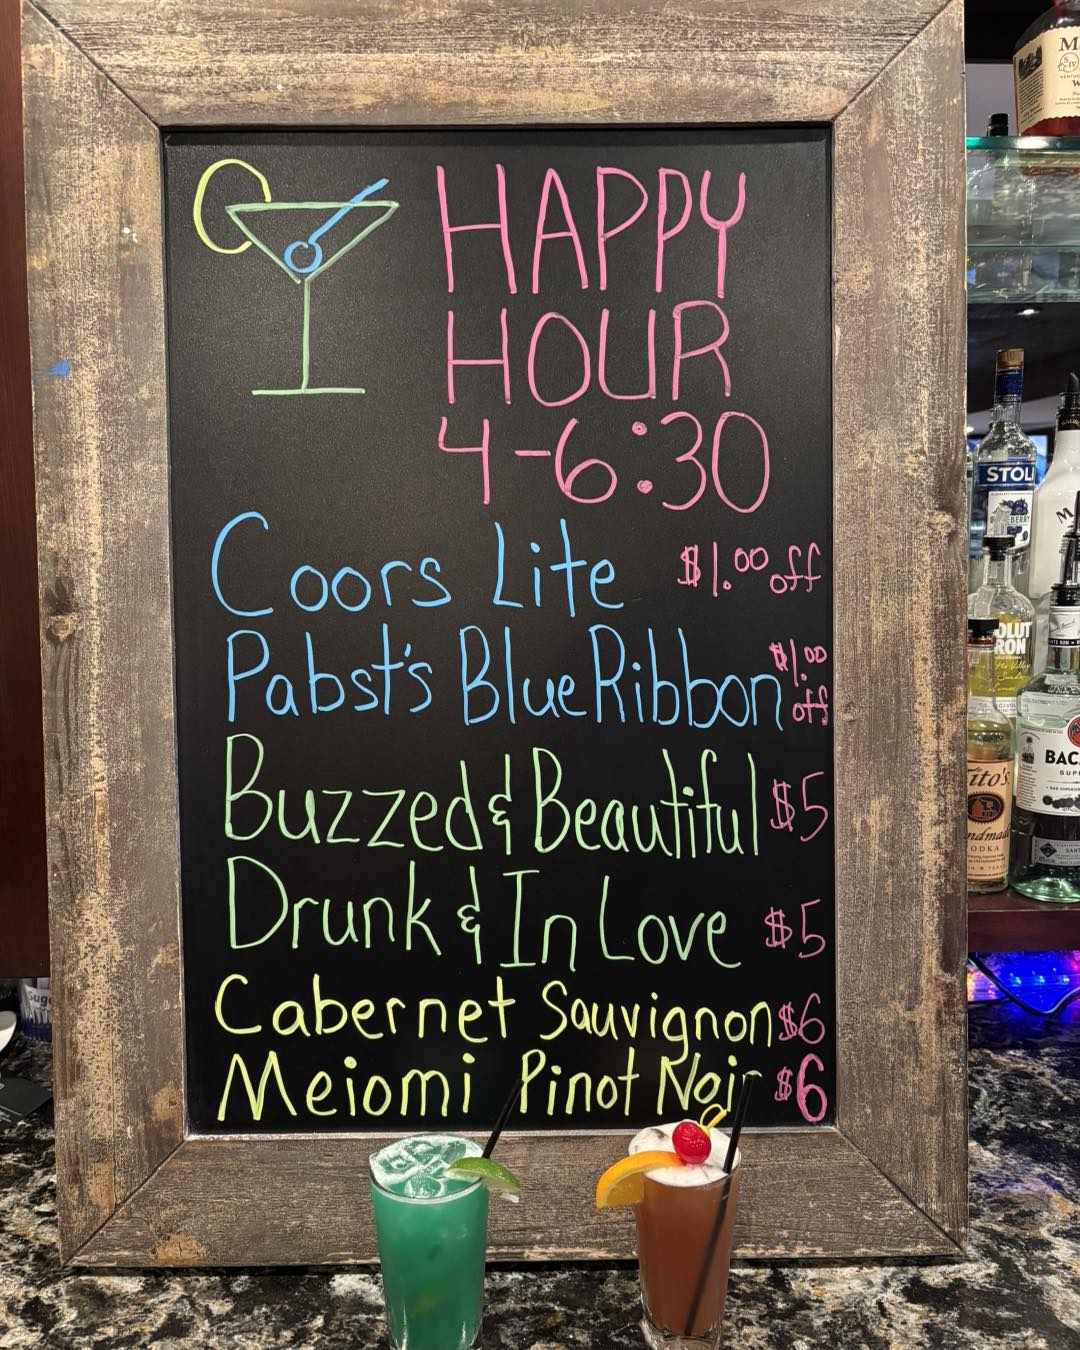 HAPPY
HOUR
4-6:30
Coors Lite $1.00 off
Pabst's Blue Ribbon $1.00 off
Buzzed & Beautiful $5
Drunk & In Love $5
Cabernet Sauvignon $6
Meiomi Pinot Noir $6
STOLI
Tito's
VODKA
BAC
SUP